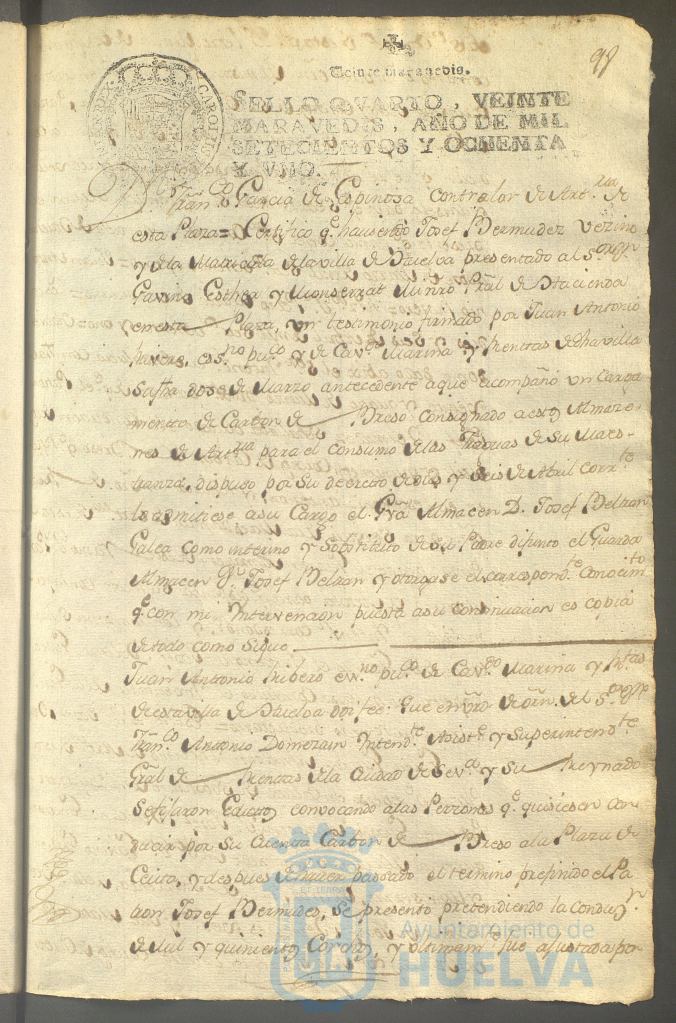 98
Veinte maravedis.
SELLO QVARTO, VEINTE
MARAVEDIS, AÑO DE MIL
SETECIENTOS Y OCHENTA
Y VNO.
Dⁿ Franᶜᵒ Garcia de Espinosa Contralor de Artᵘᵃ de
esta Plaza= Certifico qᵉ haviendo Josef Bermudez Vezino
y de la Matricula de la villa de Huelva presentado al Sᵒʳ
Gavino Esther y Monserrat Minrõ Prãl de Hacienda
en esta Plaza, un testimonio firmado por Juan Antonio
Rivero, esⁿᵒ puᶜᵒ y de Cavᵈᵒ Marina y Rentas de dha villa
su fha dos de Marzo antecedente a que acompañó un Carga
mento de Carbon de Breso consignado a estos Almaze
nes de Artᵘᵃ para el consumo de las Fraguas de su Maes
tranza, dispuso por su decreto de dies y seis de Abril corrᵗᵉ
lo admitiese a su Cargo el Gᵈᵃ Almacen D. Josef Beltran
Galea como interino y Sobstituto de su Padre difunto el Guarda
Almacen Dⁿ Josef Beltran y otorgase el correspondᵗᵉ Conocimᵗᵒ
qᵉ con mi Intervencion puesta a su continuacion es copia
de todo como sigue
Juan Antonio Ribero esⁿᵒ puᶜᵒ de Cavᵈᵒ Marina y Rᵗᵃˢ
de esta villa de Huelva doi fee: Que en virᵈ de orñ. del Sᵒʳ
Franᶜᵒ Antonio Domezain Intendᵗᵉ Asistᵉ y Superintendᵗᵉ
Grãl de Rentas de la Ciudad de Sevᵃ y su Reynado
se fijaron Edictos convocando a las Personas qᵉ quisiesen con
ducir por su Cuenta Carbon de Breso a la Plaza de
Ceuta, y despues de haver passado el termino prefinido el Pa
tron Josef Bermudes, se presentó pretendiendo la conduⁿ
de mil y quinientos Corchos, y ultimamᵗᵉ fue ajustada por
Ayuntamiento de
HUELVA